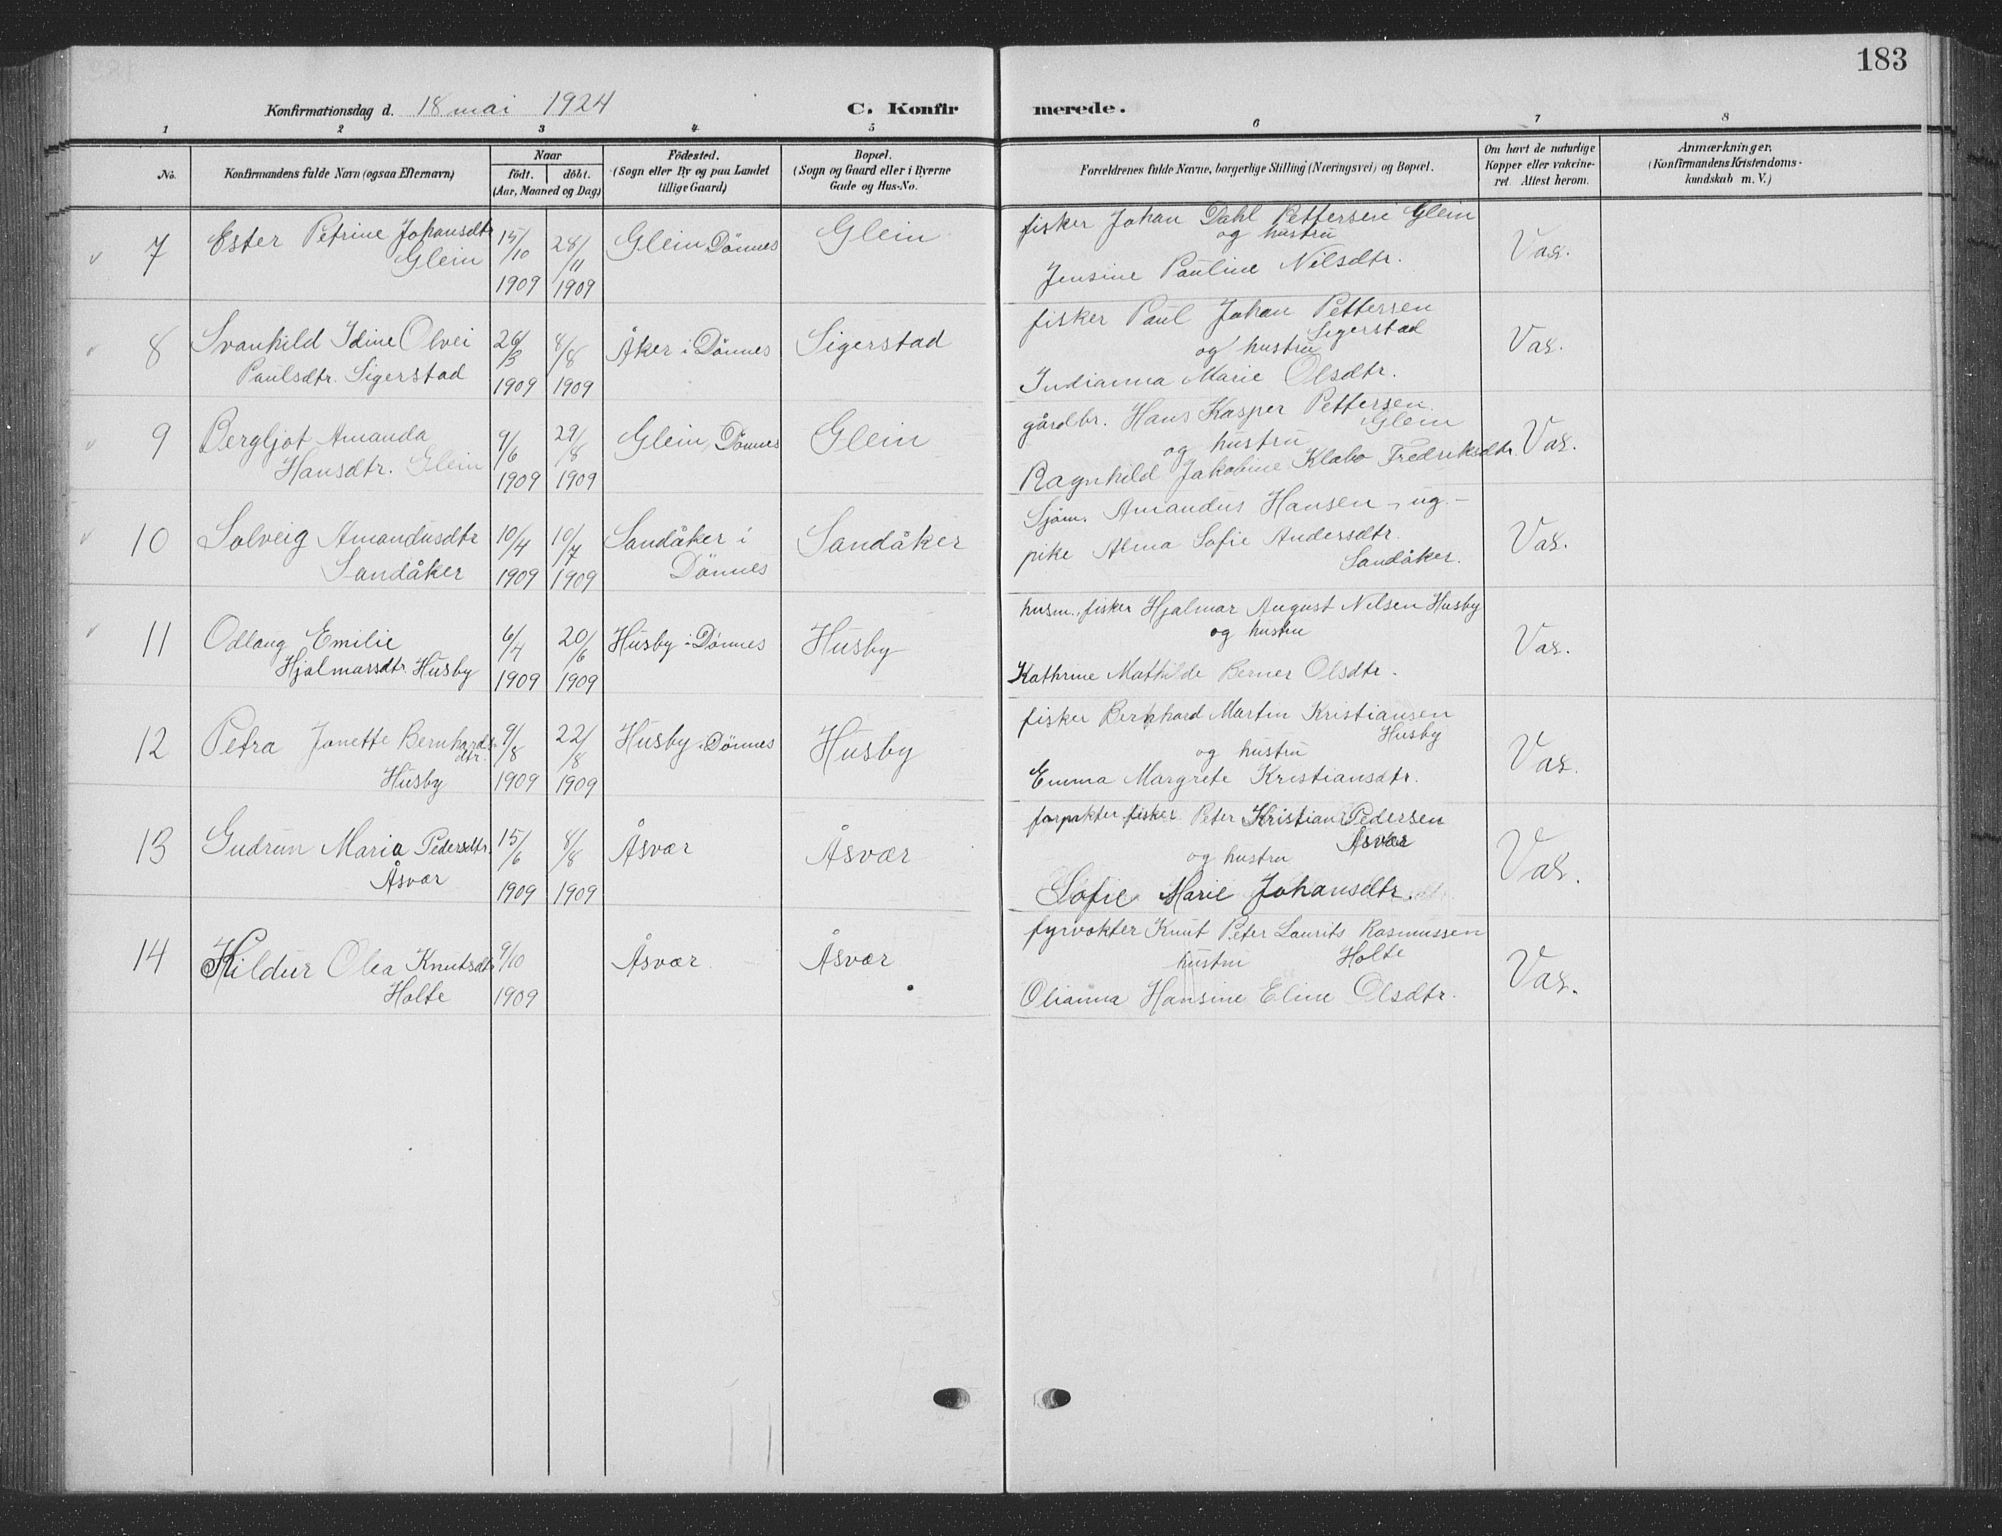 183
Konfirmationsdag d. 18 mai 1924 C. Konfirmerede.
1 2 3 4 5 6 7 8
No. Konfirmandens fulde Navn (ogsaa Efternavn) Naar födt. döbt. (Aar, Maaned og Dag) Födested. (Sogn eller By og paa Landet tillige Gaard) Bopæl. (Sogn og Gaard eller i Byerne Gade og Hus-No. Forældrenes fulde Navne, borgerlige Stilling (Næringsvei) og Bopæl. Om havt de naturlige Kopper eller vakcineret. Attest herom. Anmærkninger. (Konfirmandens Kristendomskundskab m. V.)
7 Ester Petrine Johansdtr Glein 15/10 1909 28/11 1909 Glein Dönnes Glein fisker Johan Dahl Pettersen Glein og hustru Jensine Pauline Nilsdtr. Vax.
8 Svanhild Idine Olvei Paulsdtr. Sigerstad 26/3 1909 8/8 1909 Åker i Dönnes Sigerstad fisker Paul Johan Pettersen Sigerstad og hustru Indianna Marie Olsdtr. Vax.
9 Bergljot Amanda Hansdtr. Glein 9/6 1909 29/8 1909 Glein, Dönnes Glein gårdbr. Hans Kasper Pettersen Glein og hustru Ragnhild Jakobine Klabo Fredriksdtr. Vax.
10 Solveig Amandusdtr Sandåker 10/4 1909 10/7 1909 Sandåker i Dönnes Sandåker Sjöm. Amandus Hansen, ug.- pike Alma Sofie Andersdtr. Sandåker. Vax.
11 Odlaug Emilie Hjalmarsdtr. Husby 6/4 1909 20/6 1909 Husby i Dönnes Husby husm. fisker Hjalmar August Nilsen Husby og hustru Kathrine Mathilde Berner Olsdtr. Vax.
12 Petra Jonette Bernhardsdtr. Husby 9/8 1909 22/8 1909 Husby i Dönnes Husby fisker Bernhard Martin Kristiansen Husby og hustru Emma Margrete Kristiansdtr. Vax.
13 Gudrun Maria Pedersdtr. Åsvær 15/6 1909 8/8 1909 Åsvær Åsvær forpakter fisker Peter Kristian Pedersen Åsvær og hustru Sofie Marie Johansdtr. Vax.
14 Hildur Olea Knutsdtr Holte 9/10 1909 Åsvær Åsvær fyrvokter Knut Peter Laurits Rasmussen Holte hustru Olianna Hansine Eline Olsdtr. Vax.